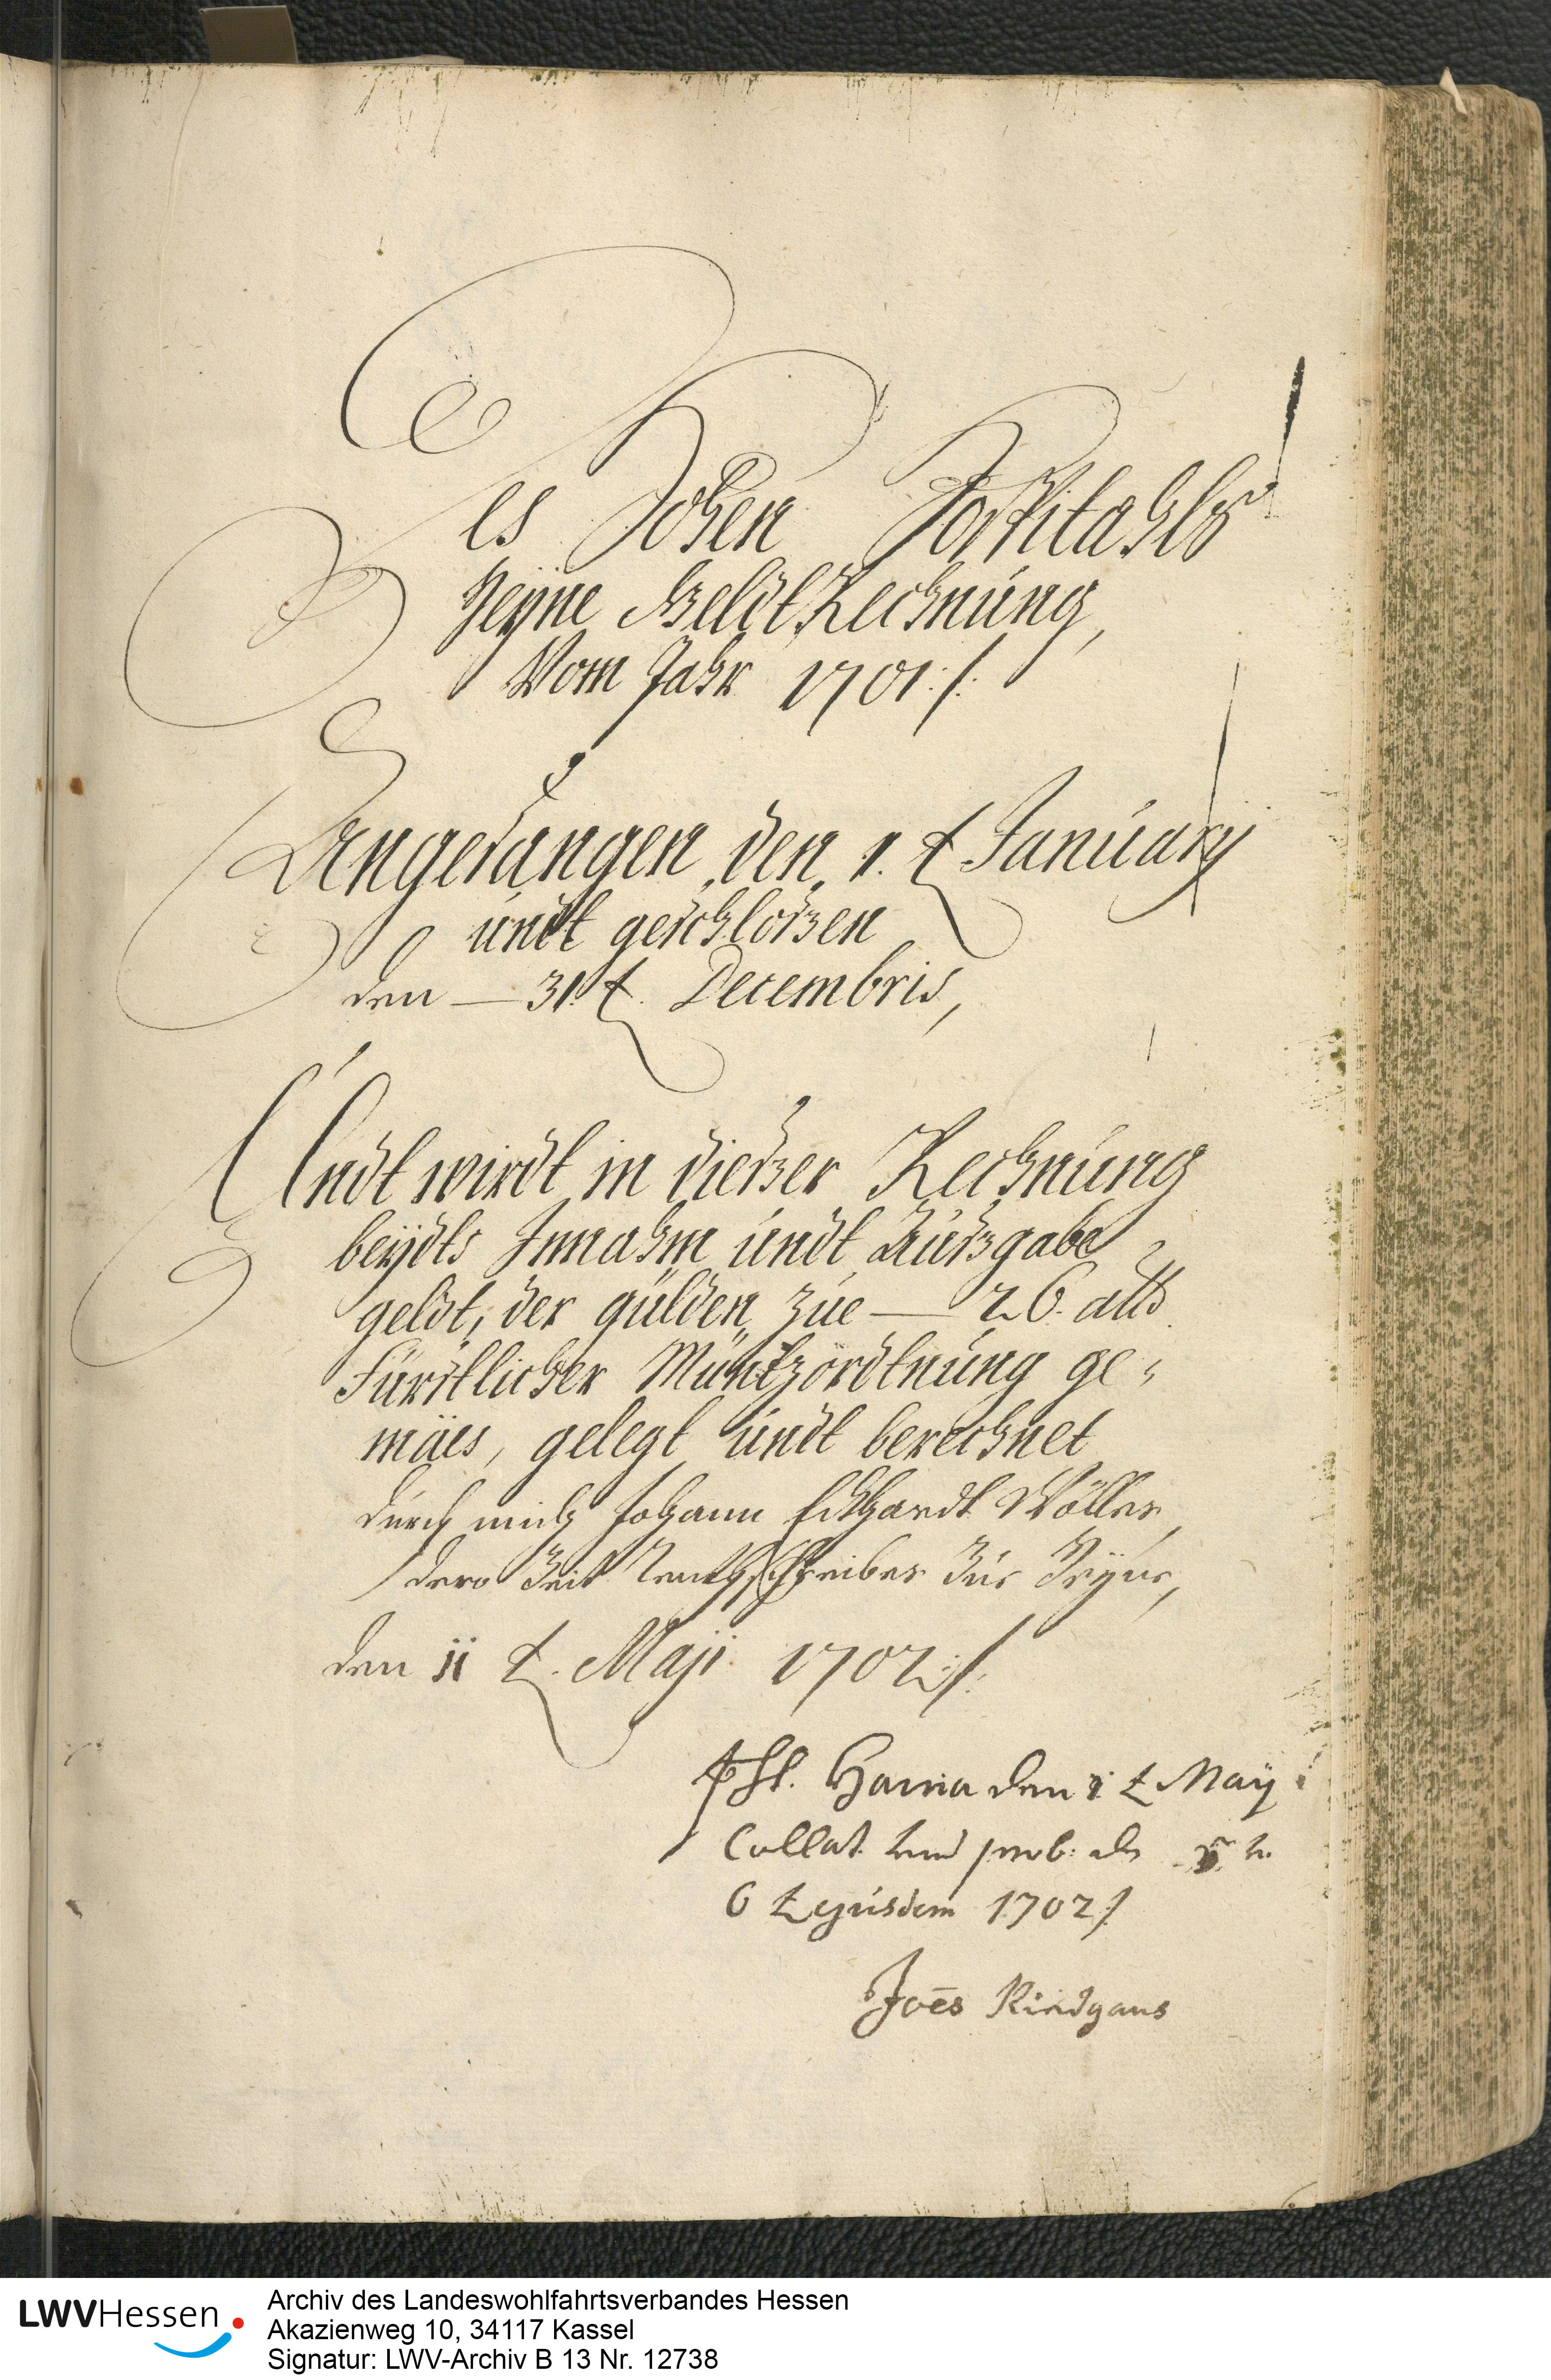 Des Hohen Hospitahls
Heÿne Geldt Rechnúng,
Vom Jahr 1701 ./.
Angefangen den 1. t Januarÿ
úndt geschloszen
den — 31. t. Decembris,
Undt wirdt in dieszer Rechnúng
beÿdts Innahm úndt Auszgabe
geldt, der gúlden zúe — 26. alb
Fürstlicher Müntzordtnúng ge-
mäes, gelegt úndt berechnet
dúrch mich Johann Eckhardt Möller
dero Zeit schreiber zúe Heÿne,
den 11 t. Maji 1702 ./.
Haina den t Maÿ
Collat. und prob. den
6 t ejusdem 1702 ./.
Joēs Rindgans
LWVHessen
Archiv des Landeswohlfahrtsverbandes Hessen
Akazienweg 10, 34117 Kassel
Signatur: LWV-Archiv B 13 Nr. 12738